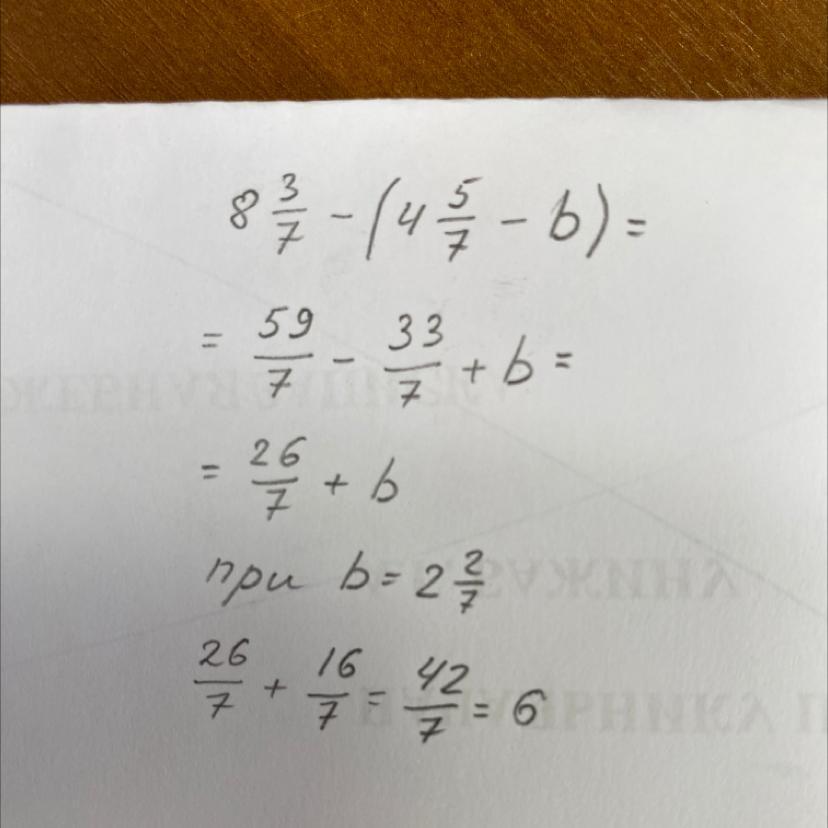 8 3/7 - (4 5/7 - b) =
= 59/7 - 33/7 + b =
= 26/7 + b
при b = 2 2/7
26/7 + 16/7 = 42/7 = 6